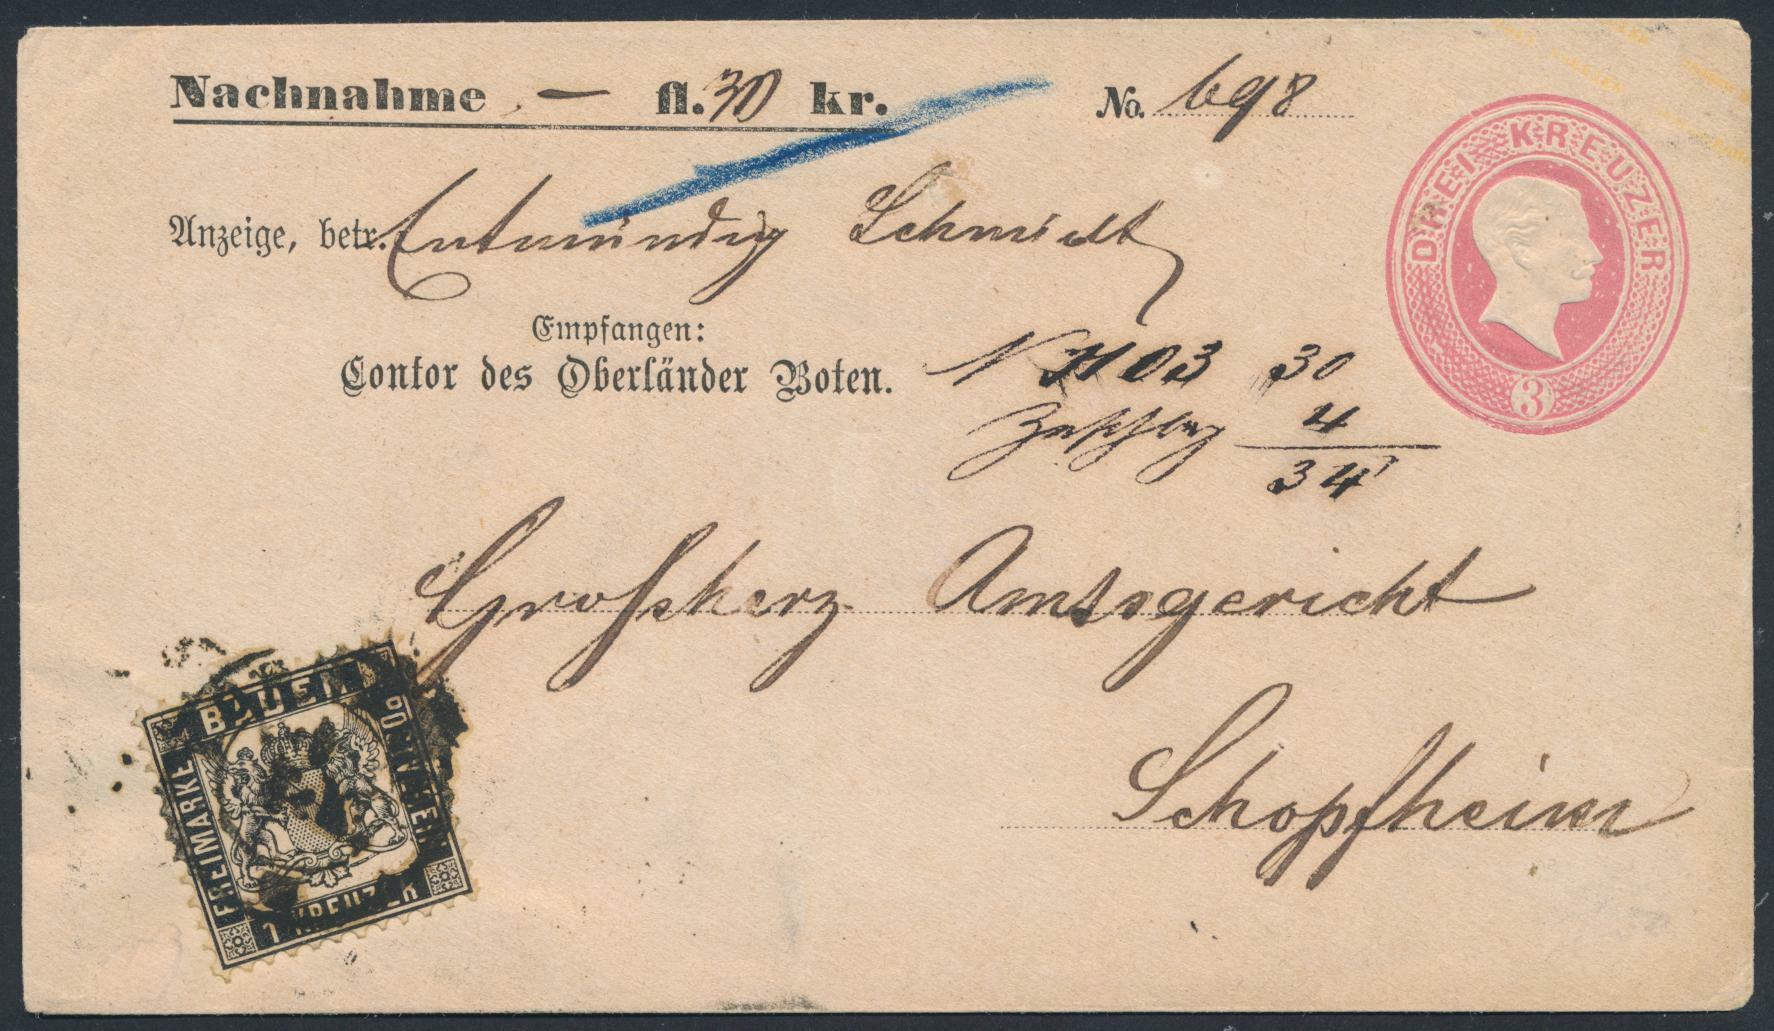 Nachnahme — fl. 30 kr. No. 698
Anzeige, betr. Entmündig Schmidt
Empfangen:
Contor des Oberländer Boten.
1103 30
4
34
Großherz. Amtsgericht
Schopfheim
DREI KREUZER
3
BADEN
FREIMARKE
1 KREUZER